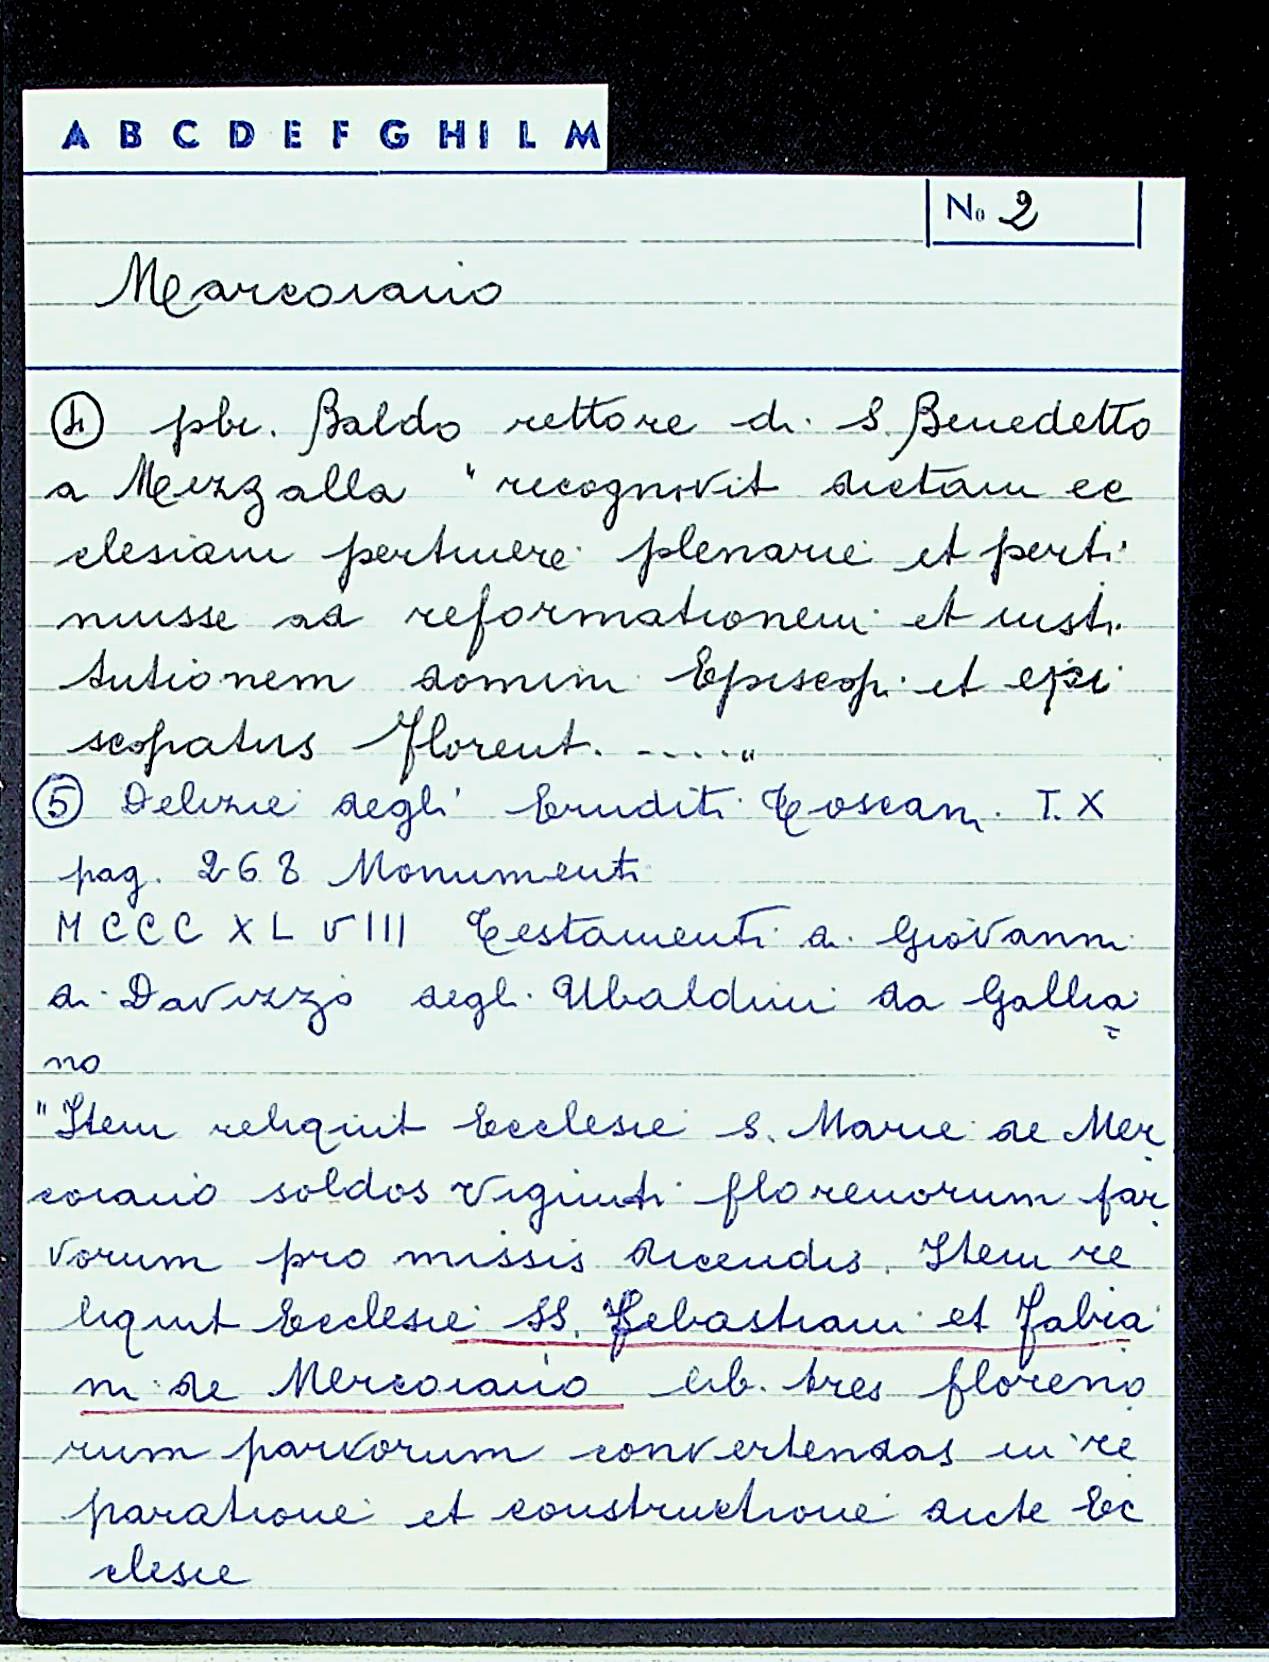 A B C D E F G H I L M
No 2
Marcoiano
④ pbr. Baldo rettore di S. Benedetto
a Mezzalla "recognovit dictam ec
clesiam pertinere plenarie et perti
nuisse ad reformationem et insti
tutionem domini Episcopi et epi
scopatus Florent. ....."
⑤ Delizie degli Eruditi Toscani. T. X
pag. 268 Monumenti
MCCCXLVIII Testamenti di Giovanni
di Davizzo degli Ubaldini da Gallia
no
"Item reliquit Ecclesie S. Marie de Mer
coiano soldos viginti florenorum par
vorum pro missis dicendis. Item re
liquit Ecclesie SS. Sebastiani et Fabia
ni de Mercoiano lib. tres floreno
rum parvorum convertendas in re
paratione et constructione dicte Ec
clesie